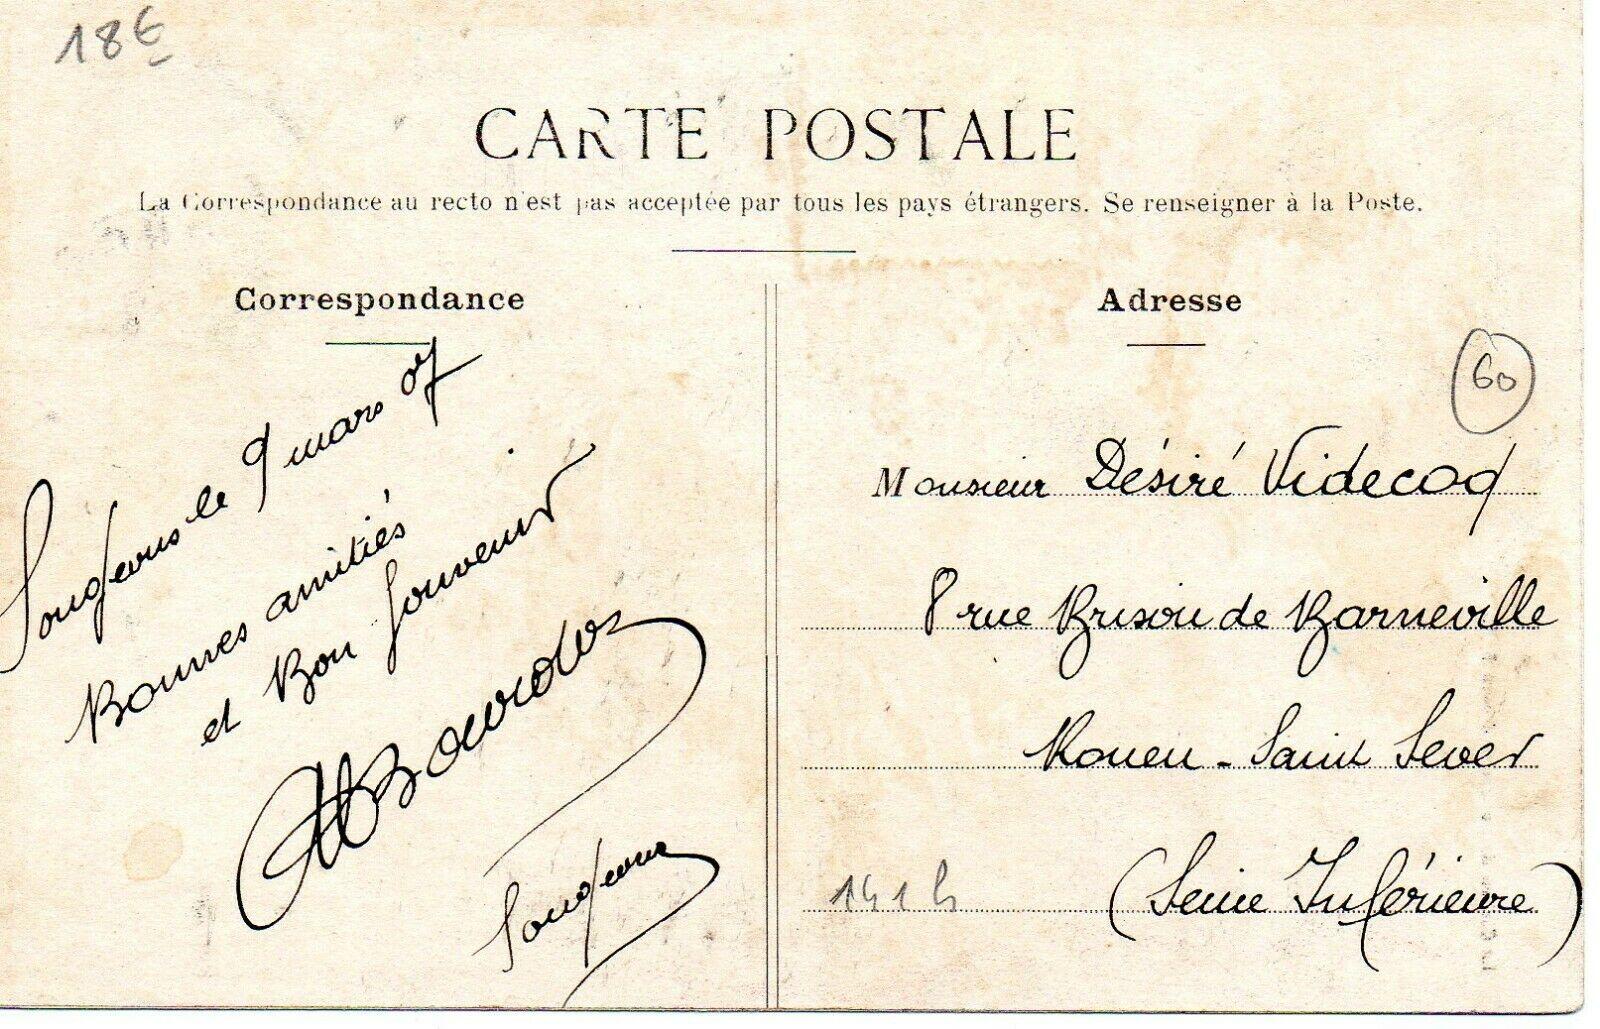 18€
CARTE POSTALE
La Correspondance au recto n'est pas acceptée par tous les pays étrangers. Se renseigner à la Poste.
Correspondance
Songeons le 9 mars 07
Bonnes amitiés
et Bon Souvenir
Songeons
Adresse
60
Monsieur Désiré Videcoq
8 rue Brisout de Barneville
Rouen - Saint Sever
(Seine Inférieure)